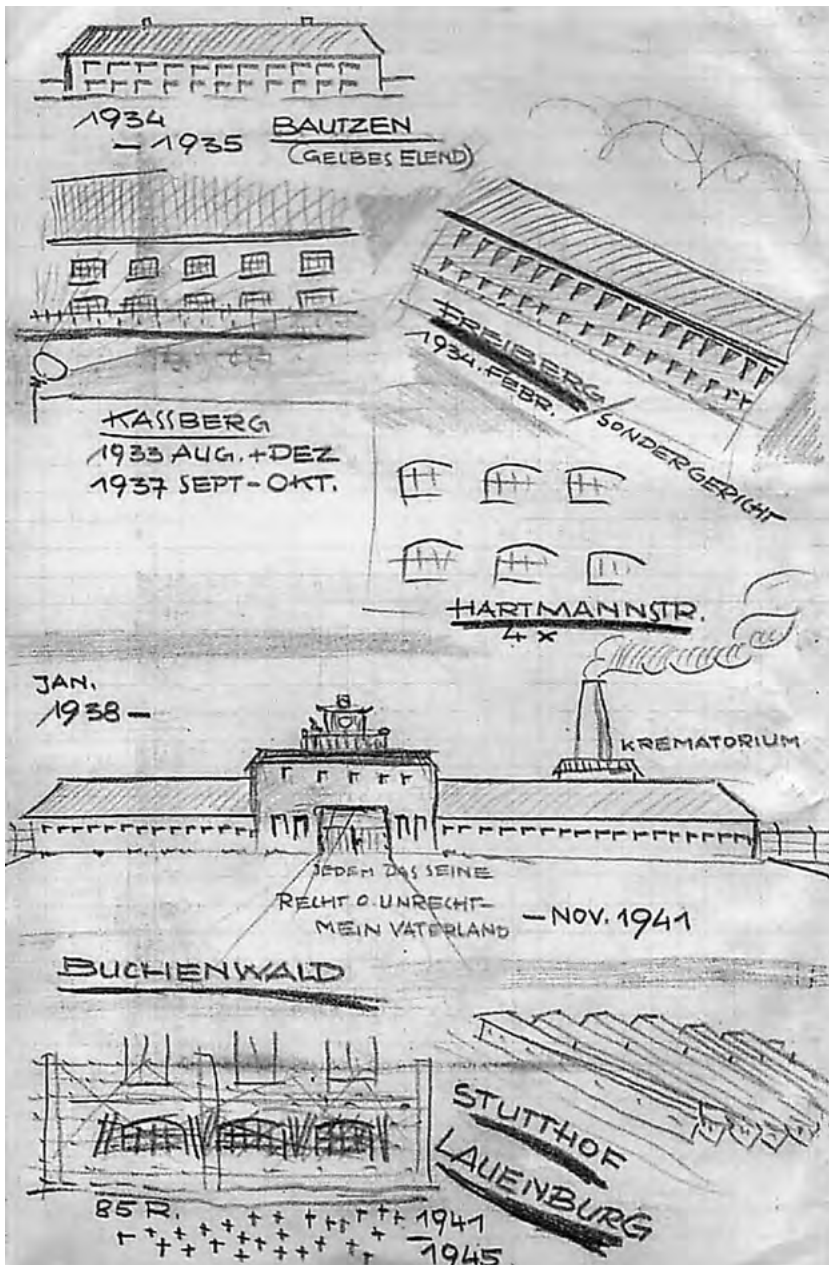 1934
– 1935
BAUTZEN
(GELBES ELEND)
FREIBERG
1934. FEBR. / SONDERGERICHT
KASSBERG
1933 AUG. + DEZ
1937 SEPT – OKT.
HARTMANNSTR.
4 x
JAN.
1938 –
KREMATORIUM
JEDEM DAS SEINE
RECHT O. UNRECHT –
MEIN VATERLAND
– NOV. 1941
BUCHENWALD
STUTTHOF
LAUENBURG
85 R.
1941
– 1945